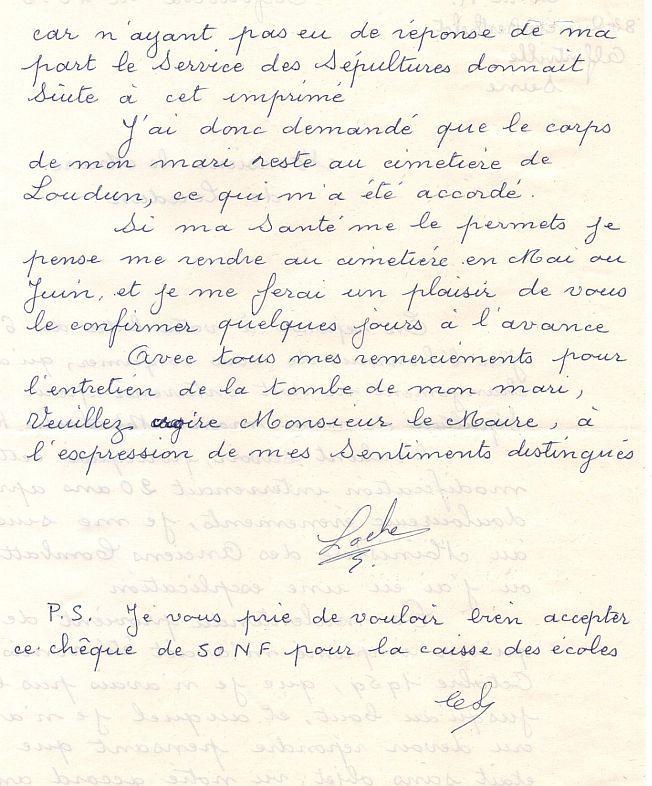 car n'ayant pas eu de réponse de ma
part le Service des Sépultures donnait
Siute à cet imprimé
J'ai donc demandé que le corps
de mon mari reste au cimetière de
Loudun, ce qui m'a été accordé.
Si ma Santé me le permets je
pense me rendre au cimetière en Mai ou
Juin, et je me ferai un plaisir de vous
le confirmer quelques jours à l'avance
Avec tous mes remerciements pour
l'entretien de la tombe de mon mari,
Veuillez croire Monsieur le Maire, à
l'expression de mes Sentiments distingués
Loche
P.S. Je vous prie de vouloir bien accepter
ce chêque de 50 NF pour la caisse des écoles